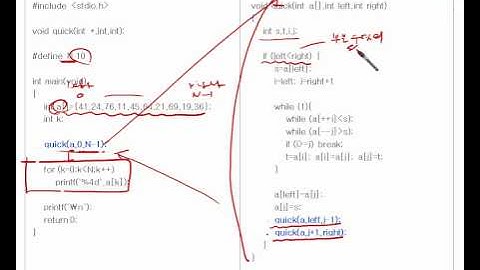 #include <stdio.h>
void quick(int *,int,int);
#define N 10
int main(void)
{
int a[]={41,24,76,11,45,64,21,69,19,36};
int k;
quick(a,0,N-1);
for (k=0;k<N;k++)
printf("%4d",a[k]);
printf("\n");
return 0;
}
0
N-1
void quick(int a[],int left,int right)
{
int s,t,i,j;
if (left<right) {
s=a[left];
i=left; j=right+1
while (1){
while (a[++i]<s);
while (a[--j]>s);
if (i>=j) break;
t=a[i]; a[i]=a[j]; a[j]=t;
}
a[left]=a[j];
a[j]=s;
quick(a,left,j-1);
quick(a,j+1,right);
}
}